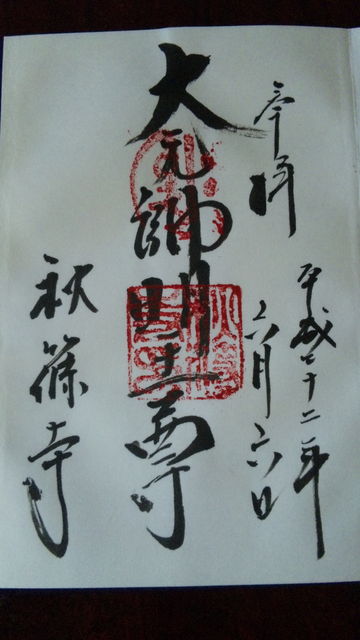 奉拝
平成二十二年
六月六日
大元帥明王尊
秋篠寺